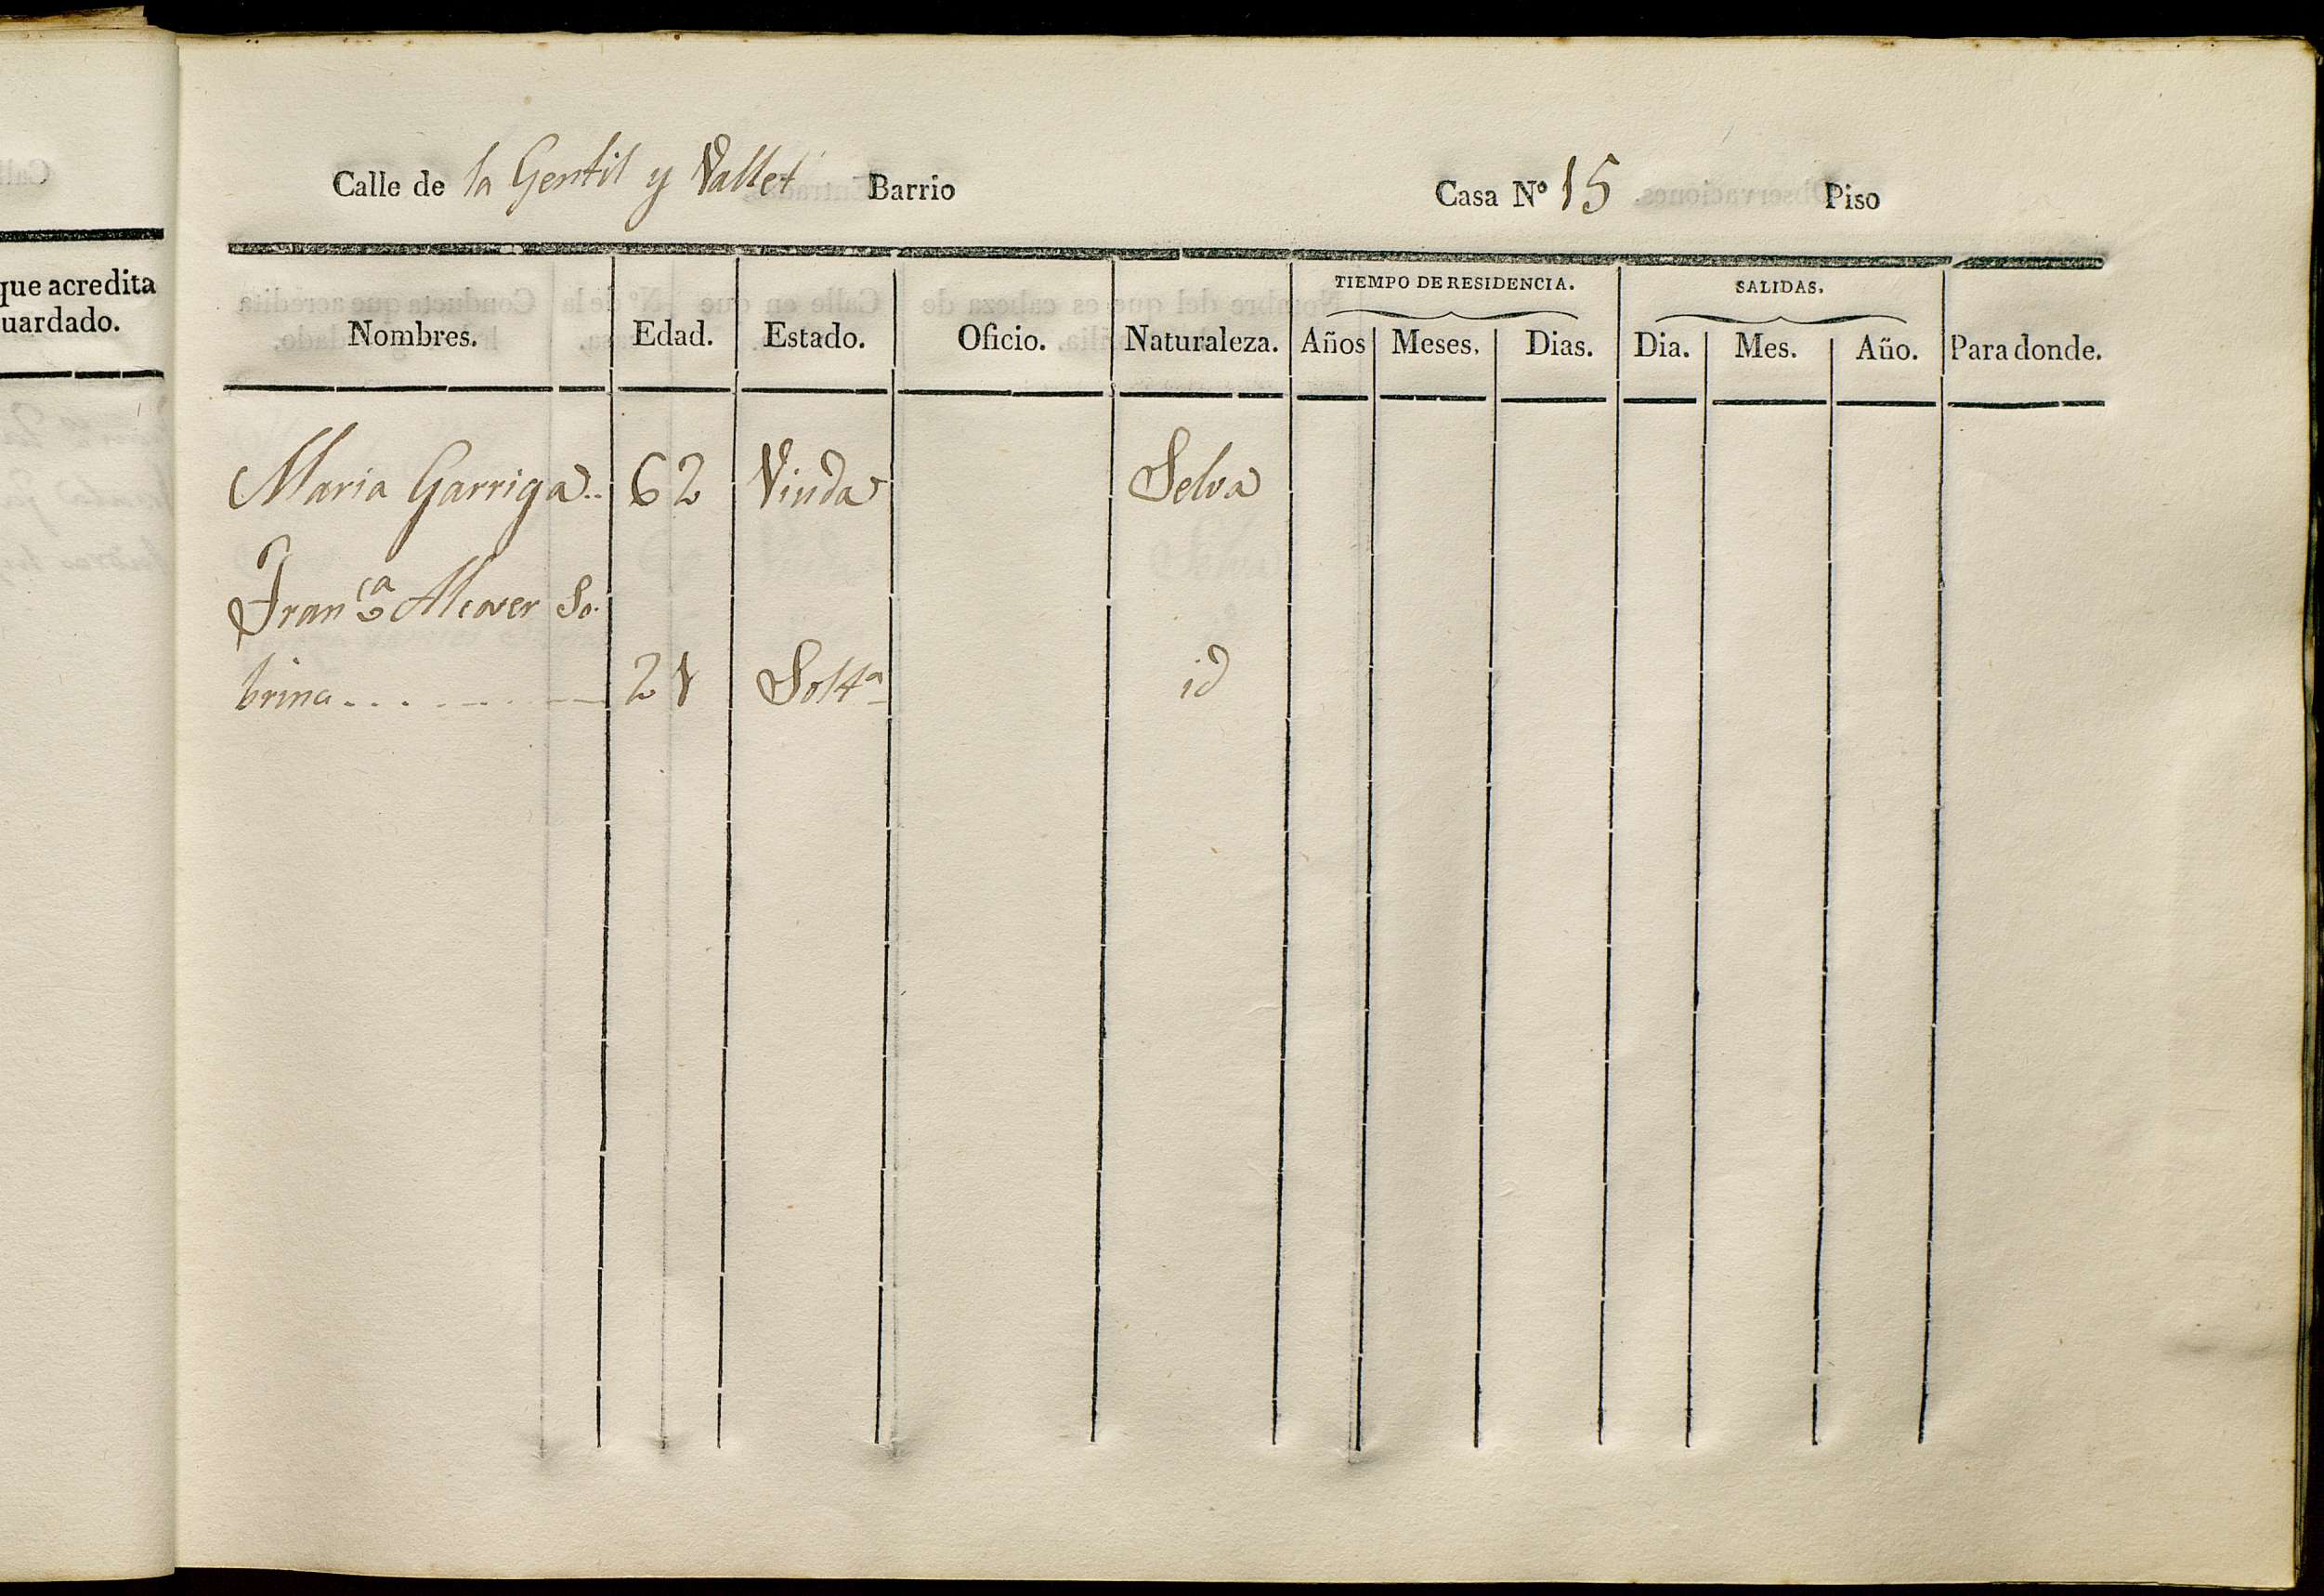 que acredita
uardado.
Calle de la Gentil y Vallet Barrio Casa Nº 15 Piso
TIEMPO DE RESIDENCIA. SALIDAS.
Nombres. Edad. Estado. Oficio. Naturaleza. Años Meses. Dias. Dia. Mes. Año. Para donde.
Maria Garriga.. 62 Viuda Selva
Franca Alcover So-
brina 21 Solta id